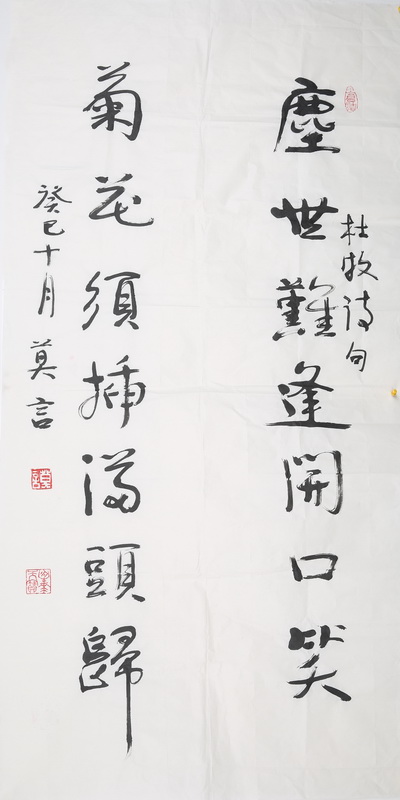 塵世難逢開口笑
杜牧诗句
菊花須插滿頭歸
癸巳十月 莫言